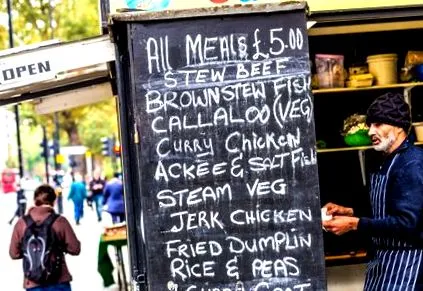 OPEN
All Meals £5.00
STEW BEEF
BROWNSTEW FISH
CALLALOO (VEG)
CURRY CHICKEN
ACKEE & SALTFISH
STEAM VEG
JERK CHICKEN
FRIED DUMPLIN
RICE & PEAS
CURRY GOAT